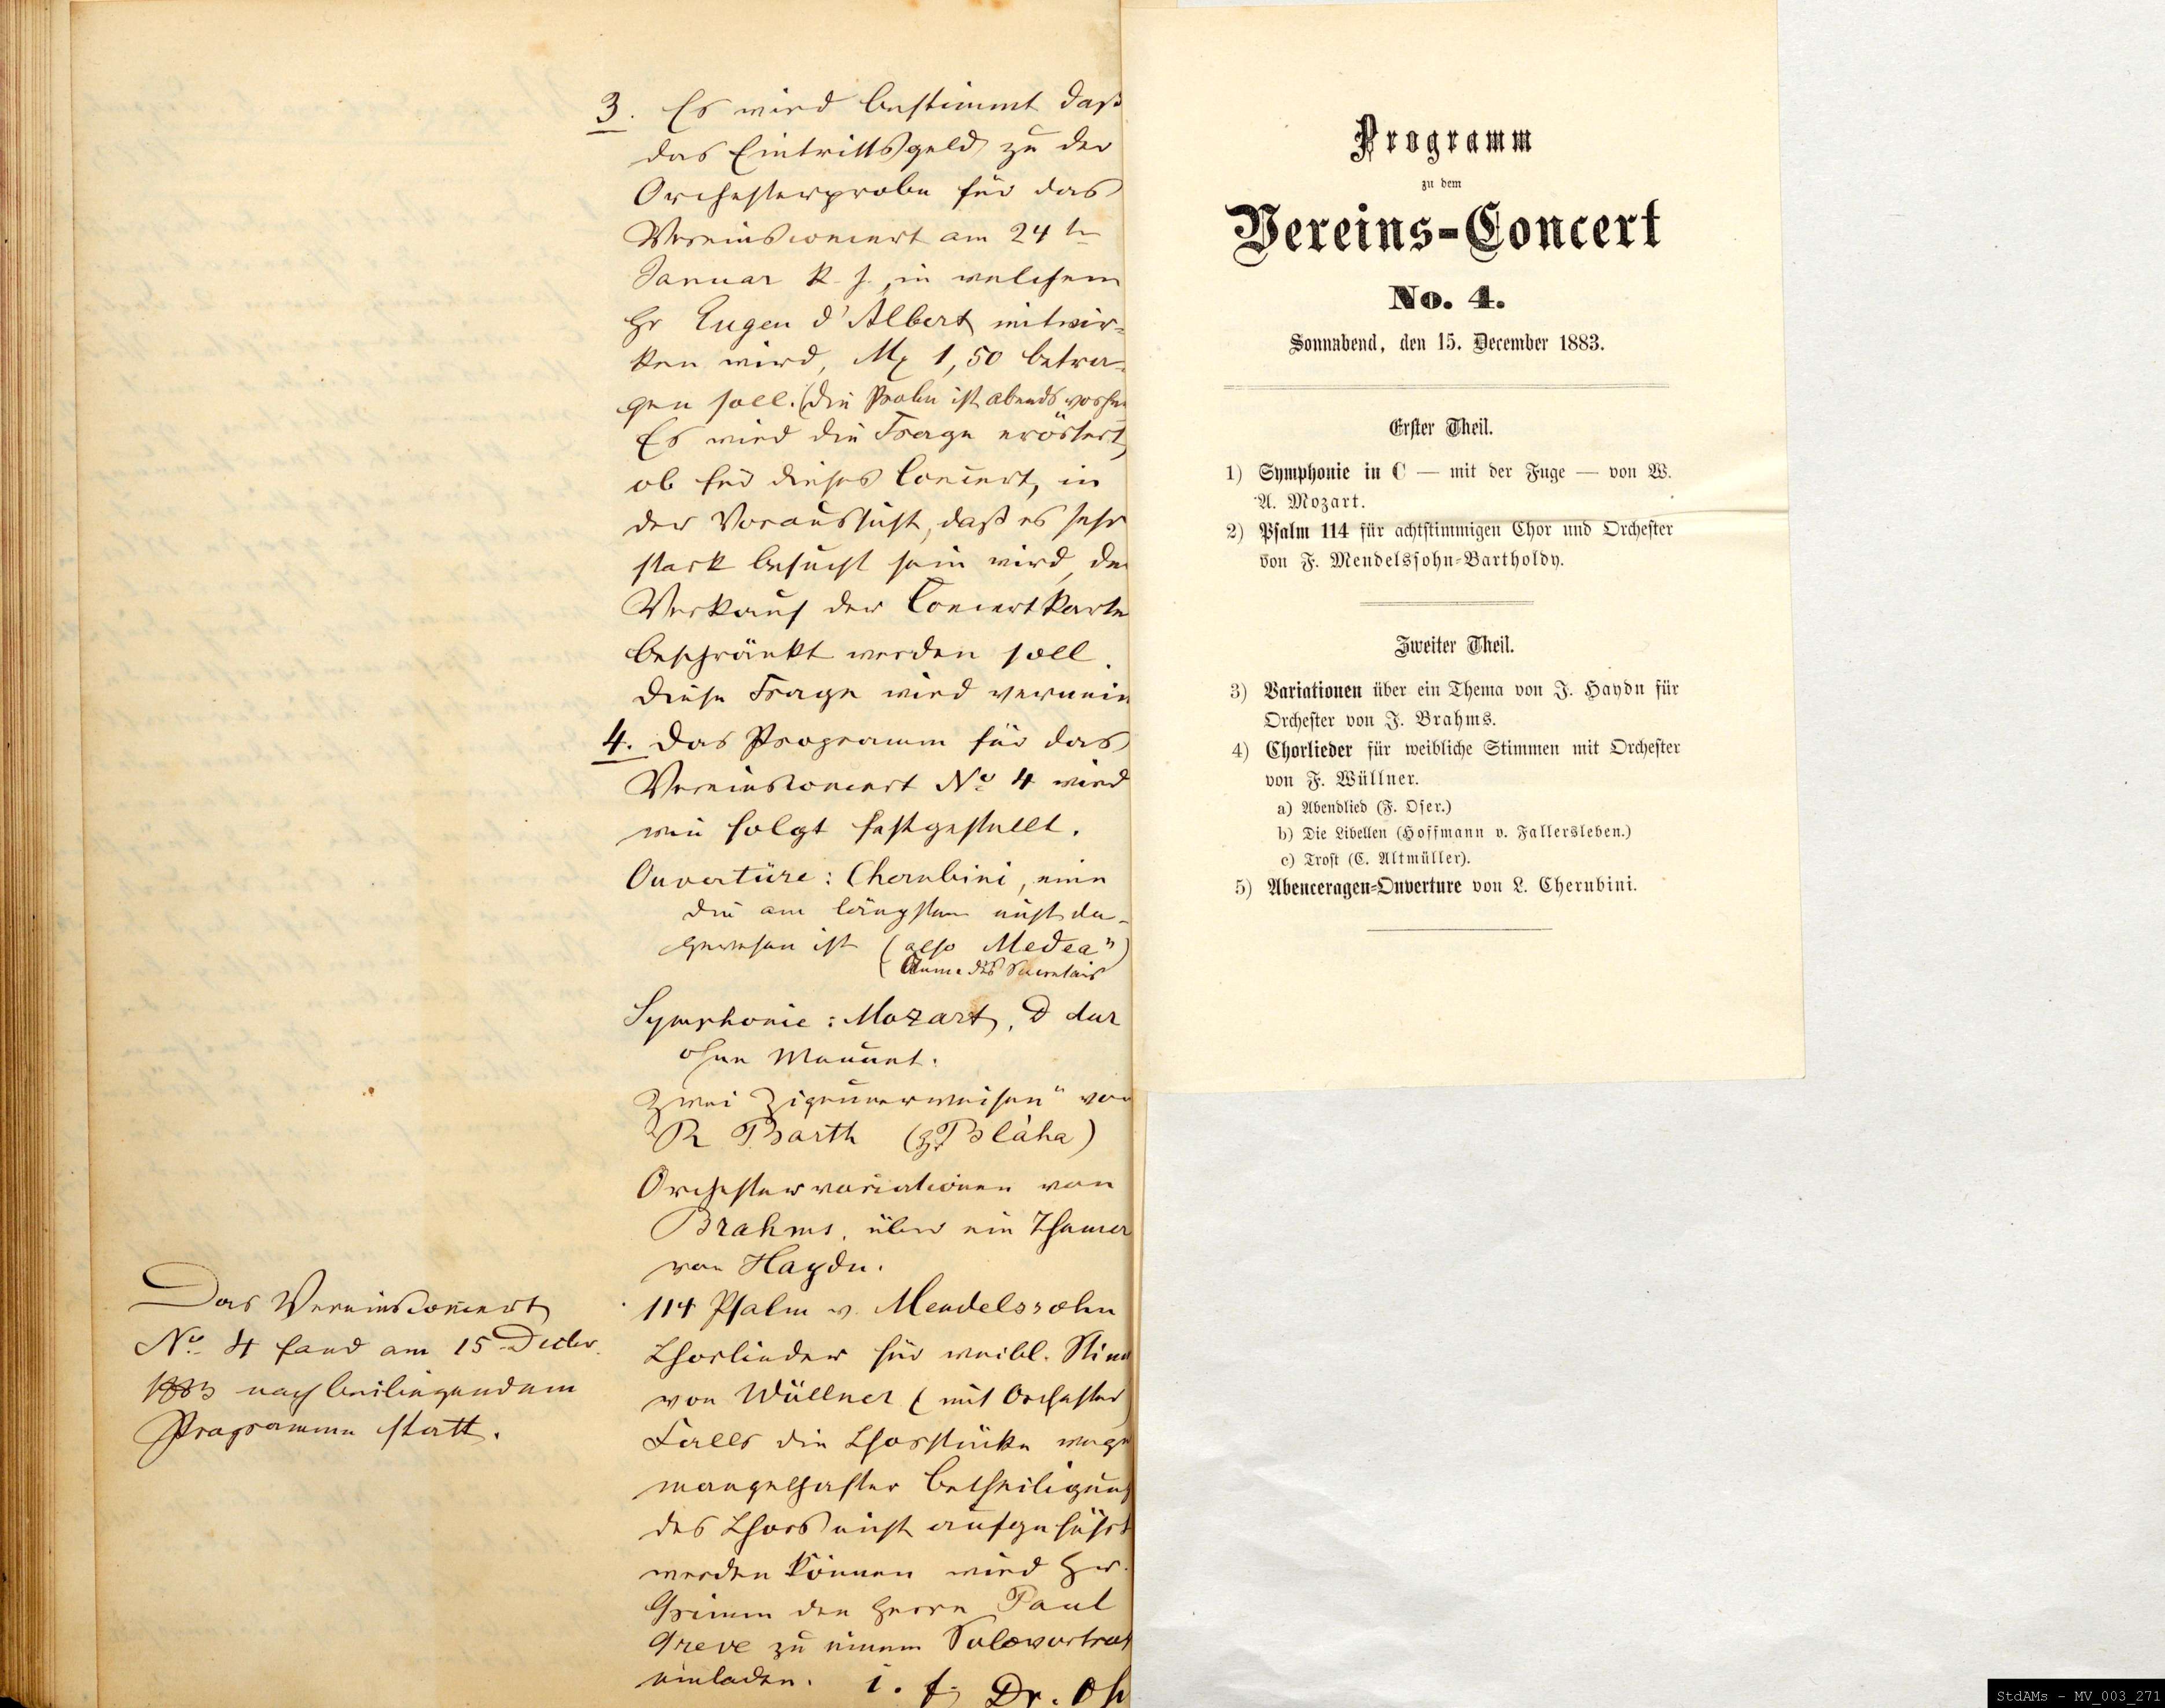 3. Es wird bestimmt daß
das Eintrittsgeld zu der
Orchesterprobe für das
Vereinsconcert am 24 ten
Januar k. J., in welchem
Hr Eugen d'Albert mitwir-
ken wird, Mk 1,50 betra-
gen soll. (die Probe ist abends vorher
Es wird die Frage erörtert,
ob für dieses Concert, in
der Voraussicht, daß es sehr
stark besucht sein wird, der
Verkauf der Concertkarte
beschränkt werden soll.
Diese Frage wird vernein
4. Das Programm für das
Vereinsconcert No 4 wird
wie folgt festgestellt.
Ouvertüre: Cherubini, eine
die am längsten nicht da-
gewesen ist (also Medea")
(Anm. des Secretairs
Symphonie: Mozart, D dur
ohne Menuet.
Zwei Zigeunerweisen" von
R Barth (Hr Bláha)
Orchestervariationen von
Brahms, über ein Thema
von Haydn.
114 Psalm v. Mendelssohn
Chorlieder für weibl. Stim
von Wüllner (mit Orchester)
Falls die Chorstücke wege
mangelhafter Betheiligung
des Chors nicht aufgeführt
werden können wird Hr.
Grimm den Herrn Paul
Greve zu einem Solovortrag
einladen. i. f. Dr. Oh
Das Vereinsconcert
No 4 fand am 15 Decbr.
1883 nach beiliegendem
Programme statt.
Programm
zu dem
Vereins-Concert
No. 4.
Sonnabend, den 15. December 1883.
Erster Theil.
1) Symphonie in C — mit der Fuge — von W.
A. Mozart.
2) Psalm 114 für achtstimmigen Chor und Orchester
von F. Mendelssohn-Bartholdy.
Zweiter Theil.
3) Variationen über ein Thema von J. Haydn für
Orchester von J. Brahms.
4) Chorlieder für weibliche Stimmen mit Orchester
von F. Wüllner.
a) Abendlied (F. Oser.)
b) Die Libellen (Hoffmann v. Fallersleben.)
c) Trost (C. Altmüller).
5) Abenceragen-Ouverture von L. Cherubini.
StdAMs - MV_003_271